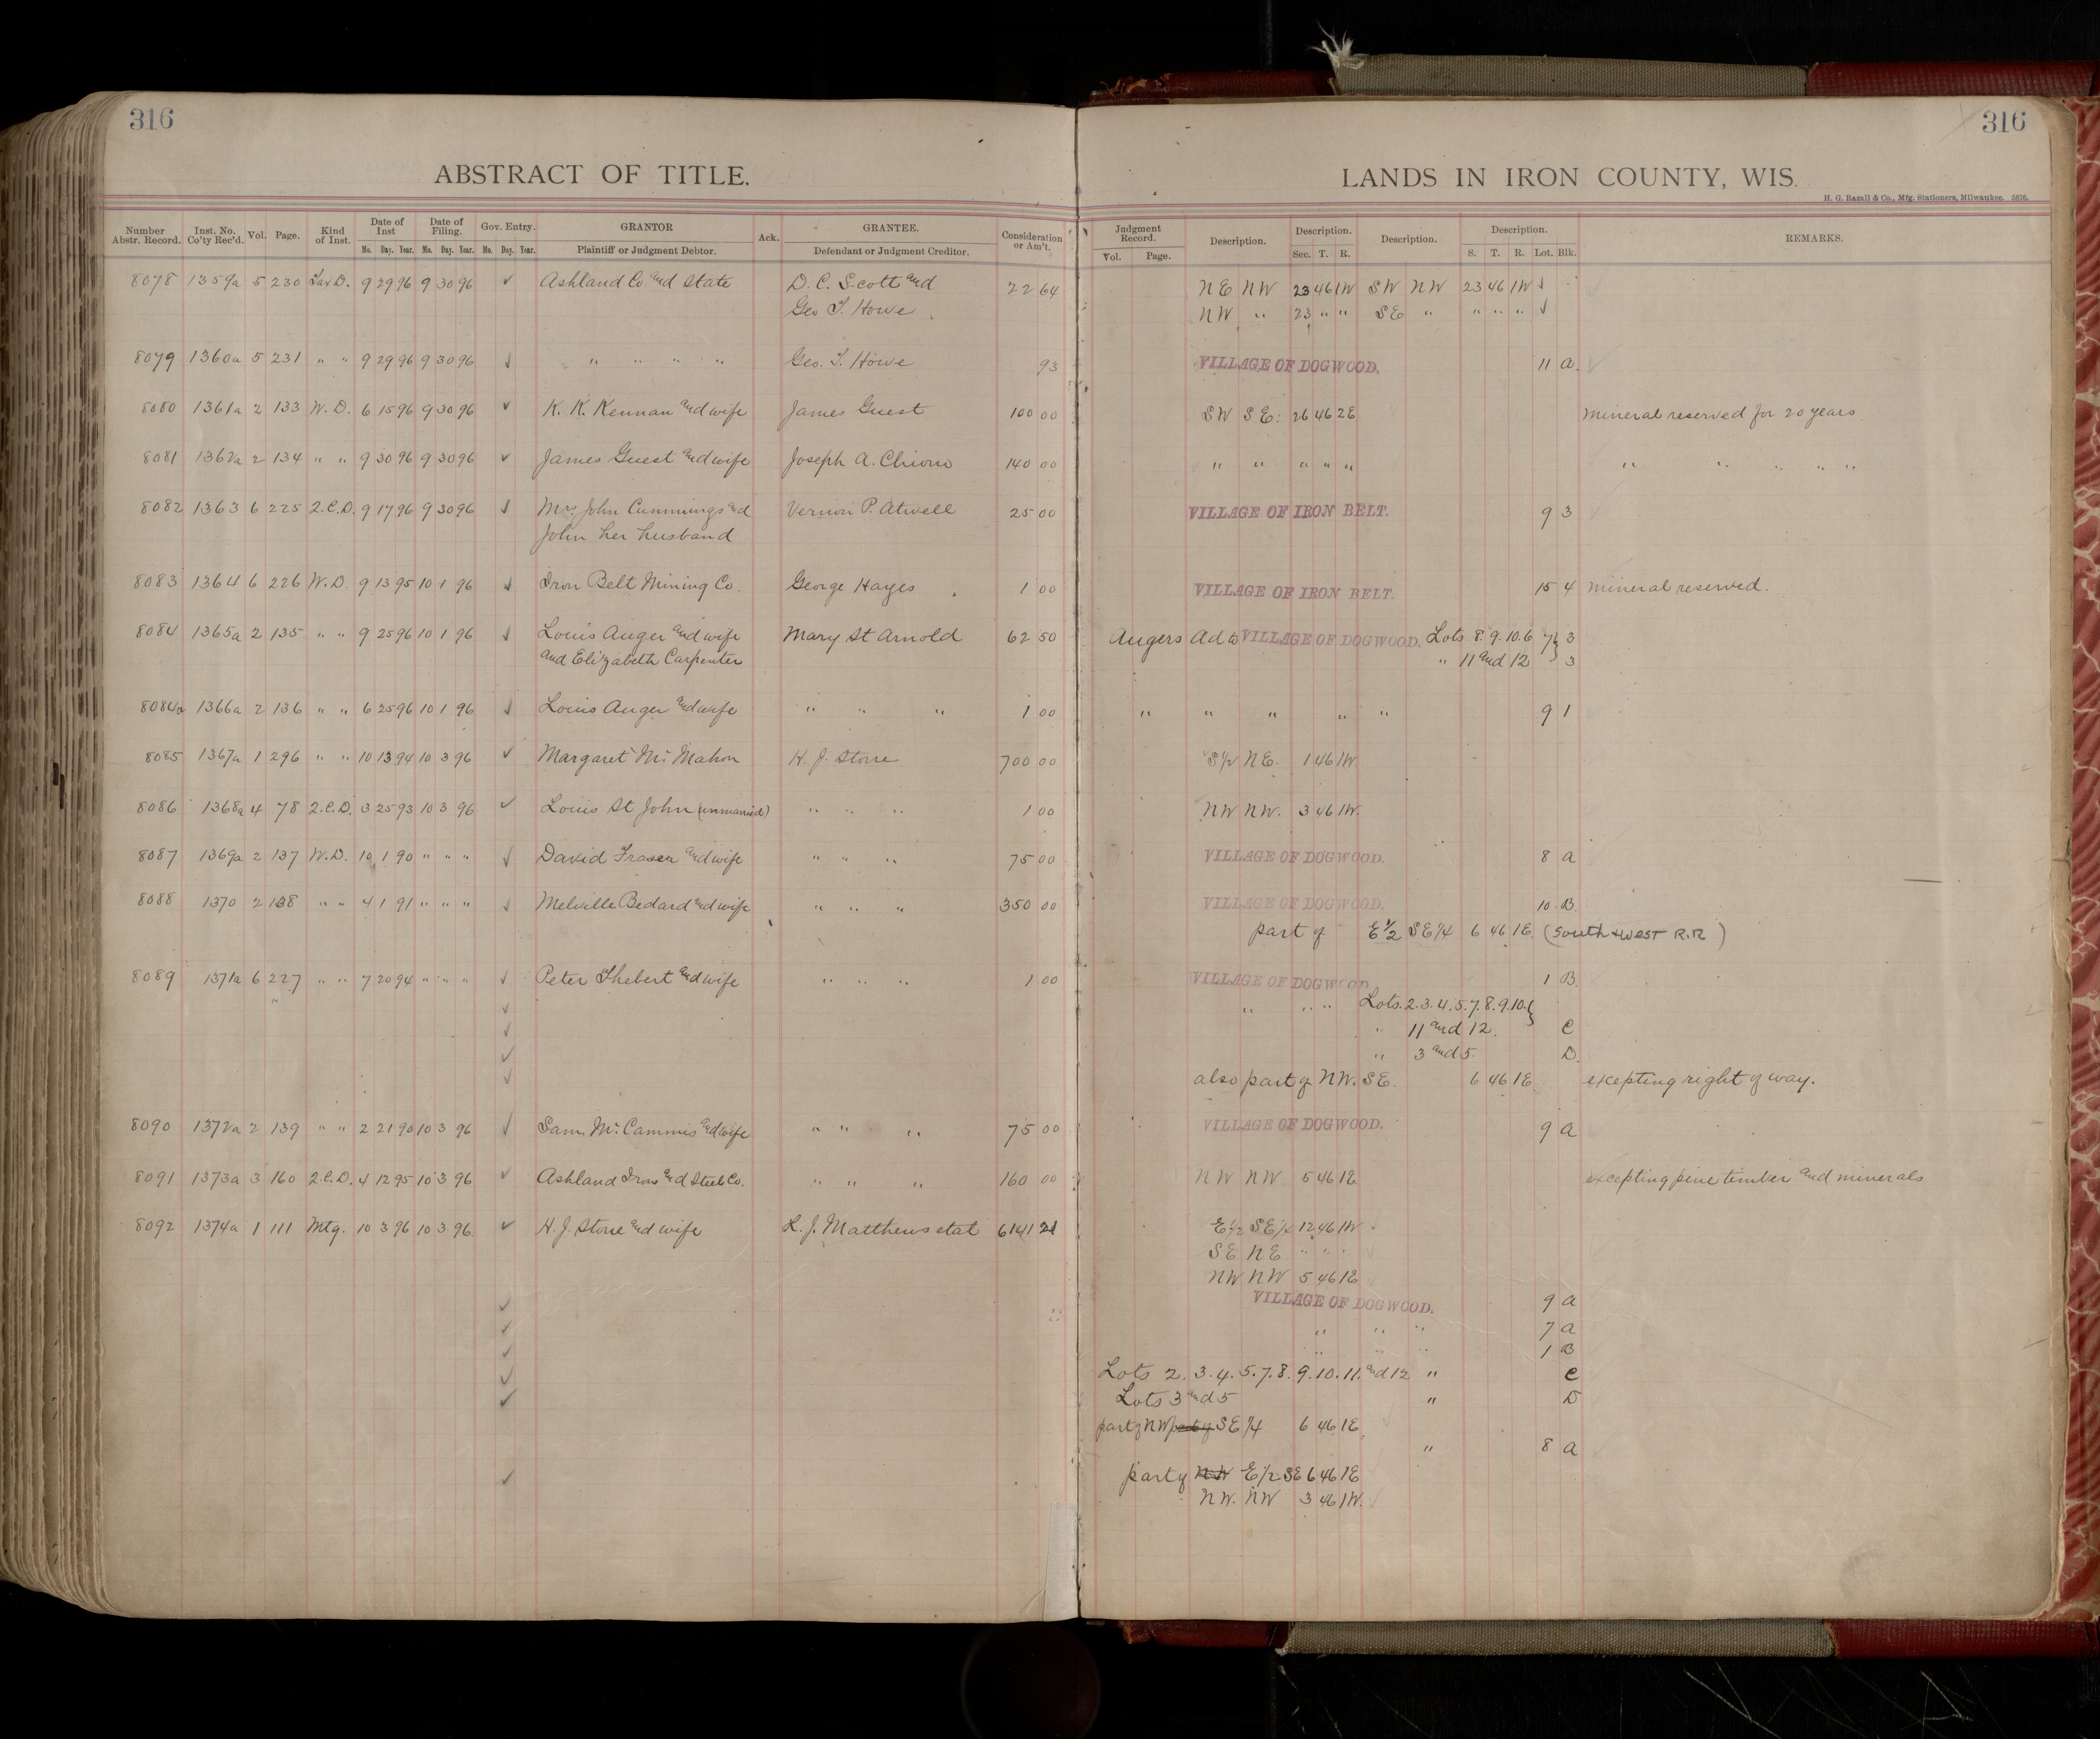 316
316
ABSTRACT OF TITLE.
LANDS IN IRON COUNTY, WIS.
H. G. Razall & Co., Mfg. Stationers, Milwaukee. 5876.
Number Abstr. Record. Inst. No. Co'ty Rec'd. Vol. Page. Kind of Inst. Date of Inst Mo. Day. Year. Date of Filing. Mo. Day. Year. Gov. Entry. No. Day. Year. GRANTOR Plaintiff or Judgment Debtor. Ack. GRANTEE. Defendant or Judgment Creditor. Consideration or Am't. Judgment Record. Vol. Page. Description. Description. Sec. T. R. Description. Description. S. T. R. Lot. Blk. REMARKS.
8078 1359a 5 230 Tax D. 9 29 96 9 30 96 ✓ Ashland Co and State D. C. Scott and 22 64 NE NW 23 46 1W SW NW 23 46 1W ✓
Geo T. Howe NW " 23 " " SE " " " " ✓
8079 1360a 5 231 " " 9 29 96 9 30 96 ✓ " " " " Geo. T. Howe 93 VILLAGE OF DOGWOOD. 11 a.
8080 1361a 2 133 W. D. 6 15 96 9 30 96 ✓ K. K. Kennan and wife James Guest 100 00 SW SE: 26 46 2E Mineral reserved for 20 years
8081 1362a 2 134 " " 9 30 96 9 30 96 ✓ James Guest and wife Joseph A. 140 00 " " " " " " " " " "
8082 1363 6 225 2.C.D. 9 17 96 9 30 96 ✓ Mrs John Cummings and Vernon P. Atwell 25 00 VILLAGE OF IRON BELT. 9 3
John her husband
8083 1364 6 226 W. D. 9 13 95 10 1 96 ✓ Iron Belt Mining Co. George Hayes 1 00 VILLAGE OF IRON BELT. 15 4 Mineral reserved.
8084 1365a 2 135 " " 9 25 96 10 1 96 ✓ Louis Auger and wife Mary St Arnold 62 50 Augers Ad to VILLAGE OF DOGWOOD. Lots 8. 9. 10. 6 7 } 3
and Elizabeth Carpenter " 11 and 12 3
8084a 1366a 2 136 " " 6 25 96 10 1 96 ✓ Louis Auger and wife " " " 1 00 " " " " " 9 1
8085 1367a 1 296 " " 10 13 94 10 3 96 ✓ Margaret Mc Mahon H. J. Stone 700 00 S1/2 NE. 1 46 1W.
8086 1368a 4 78 2.C.D. 3 25 93 10 3 96 ✓ Louis St John (unmarried) " " " 1 00 NW NW. 3 46 1W.
8087 1369a 2 137 W. D. 10 1 90 " " " ✓ David Fraser and wife " " " 75 00 VILLAGE OF DOGWOOD. 8 a
8088 1370 2 138 " " 4 1 91 " " " ✓ Melville Bedard and wife " " " 350 00 VILLAGE OF DOGWOOD. 10 B.
part of E 1/2 SE 1/4 6 46 1E. (South & West R.R)
8089 1371a 6 227 " " 7 20 94 " " " ✓ Peter Thebert and wife " " " 1 00 VILLAGE OF DOGWOOD 1 B.
" ✓ " " " Lots. 2. 3. 4. 5. 7. 8. 9. 10. }
✓ " 11 and 12. C
✓ " 3 and 5. D.
✓ also part of NW. SE. 6 46 1E. excepting right of way.
8090 1372a 2 139 " " 2 21 90 10 3 96 ✓ Sam. Mc Cammis and wife " " " 75 00 VILLAGE OF DOGWOOD. 9 a
8091 1373a 3 160 2.C.D. 4 12 95 10 3 96 ✓ Ashland Iron and Steel Co. " " " 160 00 NW NW. 5 46 1E. excepting pine timber and minerals
8092 1374a 1 111 Mtg. 10 3 96 10 3 96 ✓ H. J. Stone and wife L. J. Matthews et al 6141 21 E 1/2 SE 1/4 12 46 1W
SE NE " " "
NW NW 5 46 1E
✓ VILLAGE OF DOGWOOD. 9 a
✓ " " " 7 a
✓ " " " 1 B
✓ Lots 2. 3. 4. 5. 7. 8. 9. 10. 11. and 12 " C
✓ Lots 3 and 5 " D
part of NW part of SE 1/4 6 46 1E.
" 8 a
✓ part of NW E 1/2 SE 6 46 1E
NW. NW 3 46 1W.